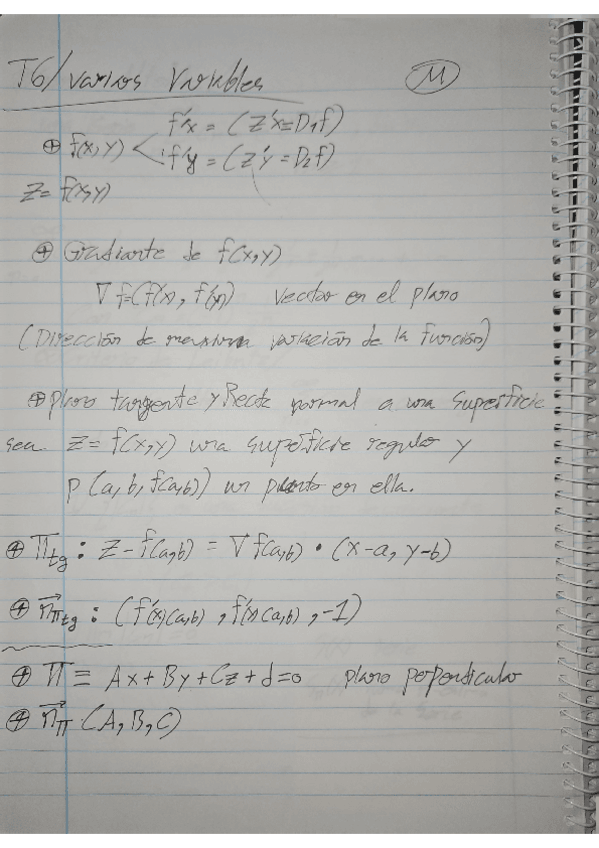 T6/varios Variables M
f'x = (z'x=D₁f)
⊕ f(x,y) < f'y = (z'y = D₂f)
z= f(x,y)
⊕ Gradiante de f(x,y)
∇f=(f'(x), f'(y)) vector en el plano
(Dirección de maxima variación de la función)
⊕ plano tangente y Recta normal a una superficie
sea z = f(x,y) una superficie regular y
P (a, b, f(a,b)) un punto en ella.
⊕ π tg : z - f(a,b) = ∇f(a,b) • (x-a, y-b)
⊕ n⃗π tg : (f'(x)(a,b), f'(y)(a,b), -1)
⊕ π ≡ Ax + By + Cz + d = 0 plano perpendicular
⊕ n⃗π (A, B, C)